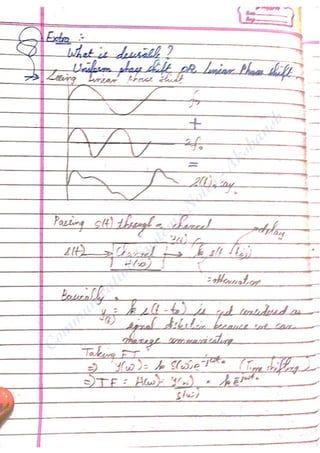 Extra :-
What is desirable?
Uniform phase shift or linear Phase shift.
→ Seeing linear Phase shift
f₀
+
2f₀
=
s(t), say
Passing s(t) through a channel
y(t) → delay
s(t) → [Channel H(ω)] → k s(t - t₀)
= attenuation
Basically,
y(t) = k s(t - t₀) is not considered as
signal distortion because we can
manage communicating
Taking FT,
⇒ Y(ω) = k S(ω) e^-jωt₀ (Time shifting)
⇒ TF = H(ω) = Y(ω)/S(ω) = k e^-jωt₀